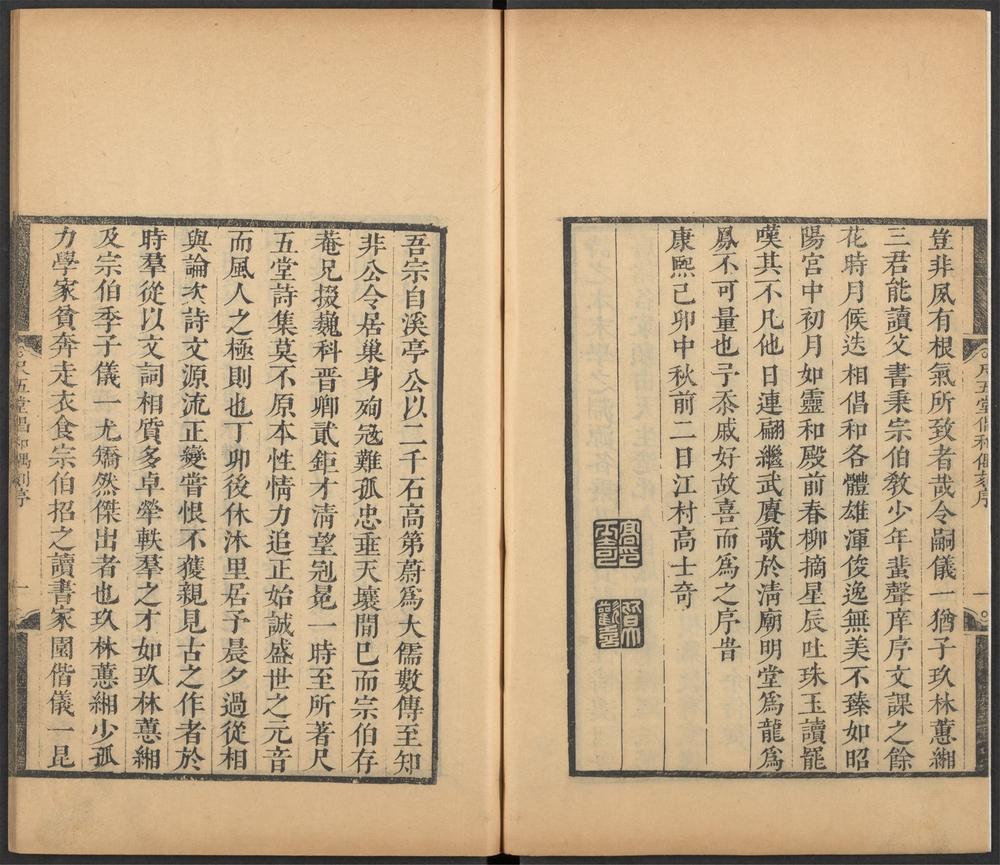 豈非夙有根氣所致者哉令嗣儀一猶子玖林蕙緗
三君能讀父書秉宗伯敎少年蜚聲庠序文課之餘
花時月候迭相倡和各體雄渾俊逸無美不臻如昭
陽宮中初月如靈和殿前春柳摘星辰吐珠玉讀罷
嘆其不凡他日連翩繼武賡歌於淸廟明堂爲龍爲
鳳不可量也予忝戚好故喜而爲之序旹
康熙己卯中秋前二日江村高士奇
尺五堂倡和偶刻序
一
吾宗自溪亭公以二千石高第蔚爲大儒數傳至知
非公令居巢身殉寇難孤忠垂天壤間巳而宗伯存
菴兄掇巍科晋卿貳鉅才淸望冠冕一時至所著尺
五堂詩集莫不原本性情力追正始誠盛世之元音
而風人之極則也丁卯後休沐里居予晨夕過從相
與論次詩文源流正變嘗恨不獲親見古之作者於
時羣從以文詞相質多卓犖軼羣之才如玖林蕙緗
及宗伯季子儀一尤矯然傑出者也玖林蕙緗少孤
力學家貧奔走衣食宗伯招之讀書家園偕儀一昆
尺五堂倡和偶刻序
一